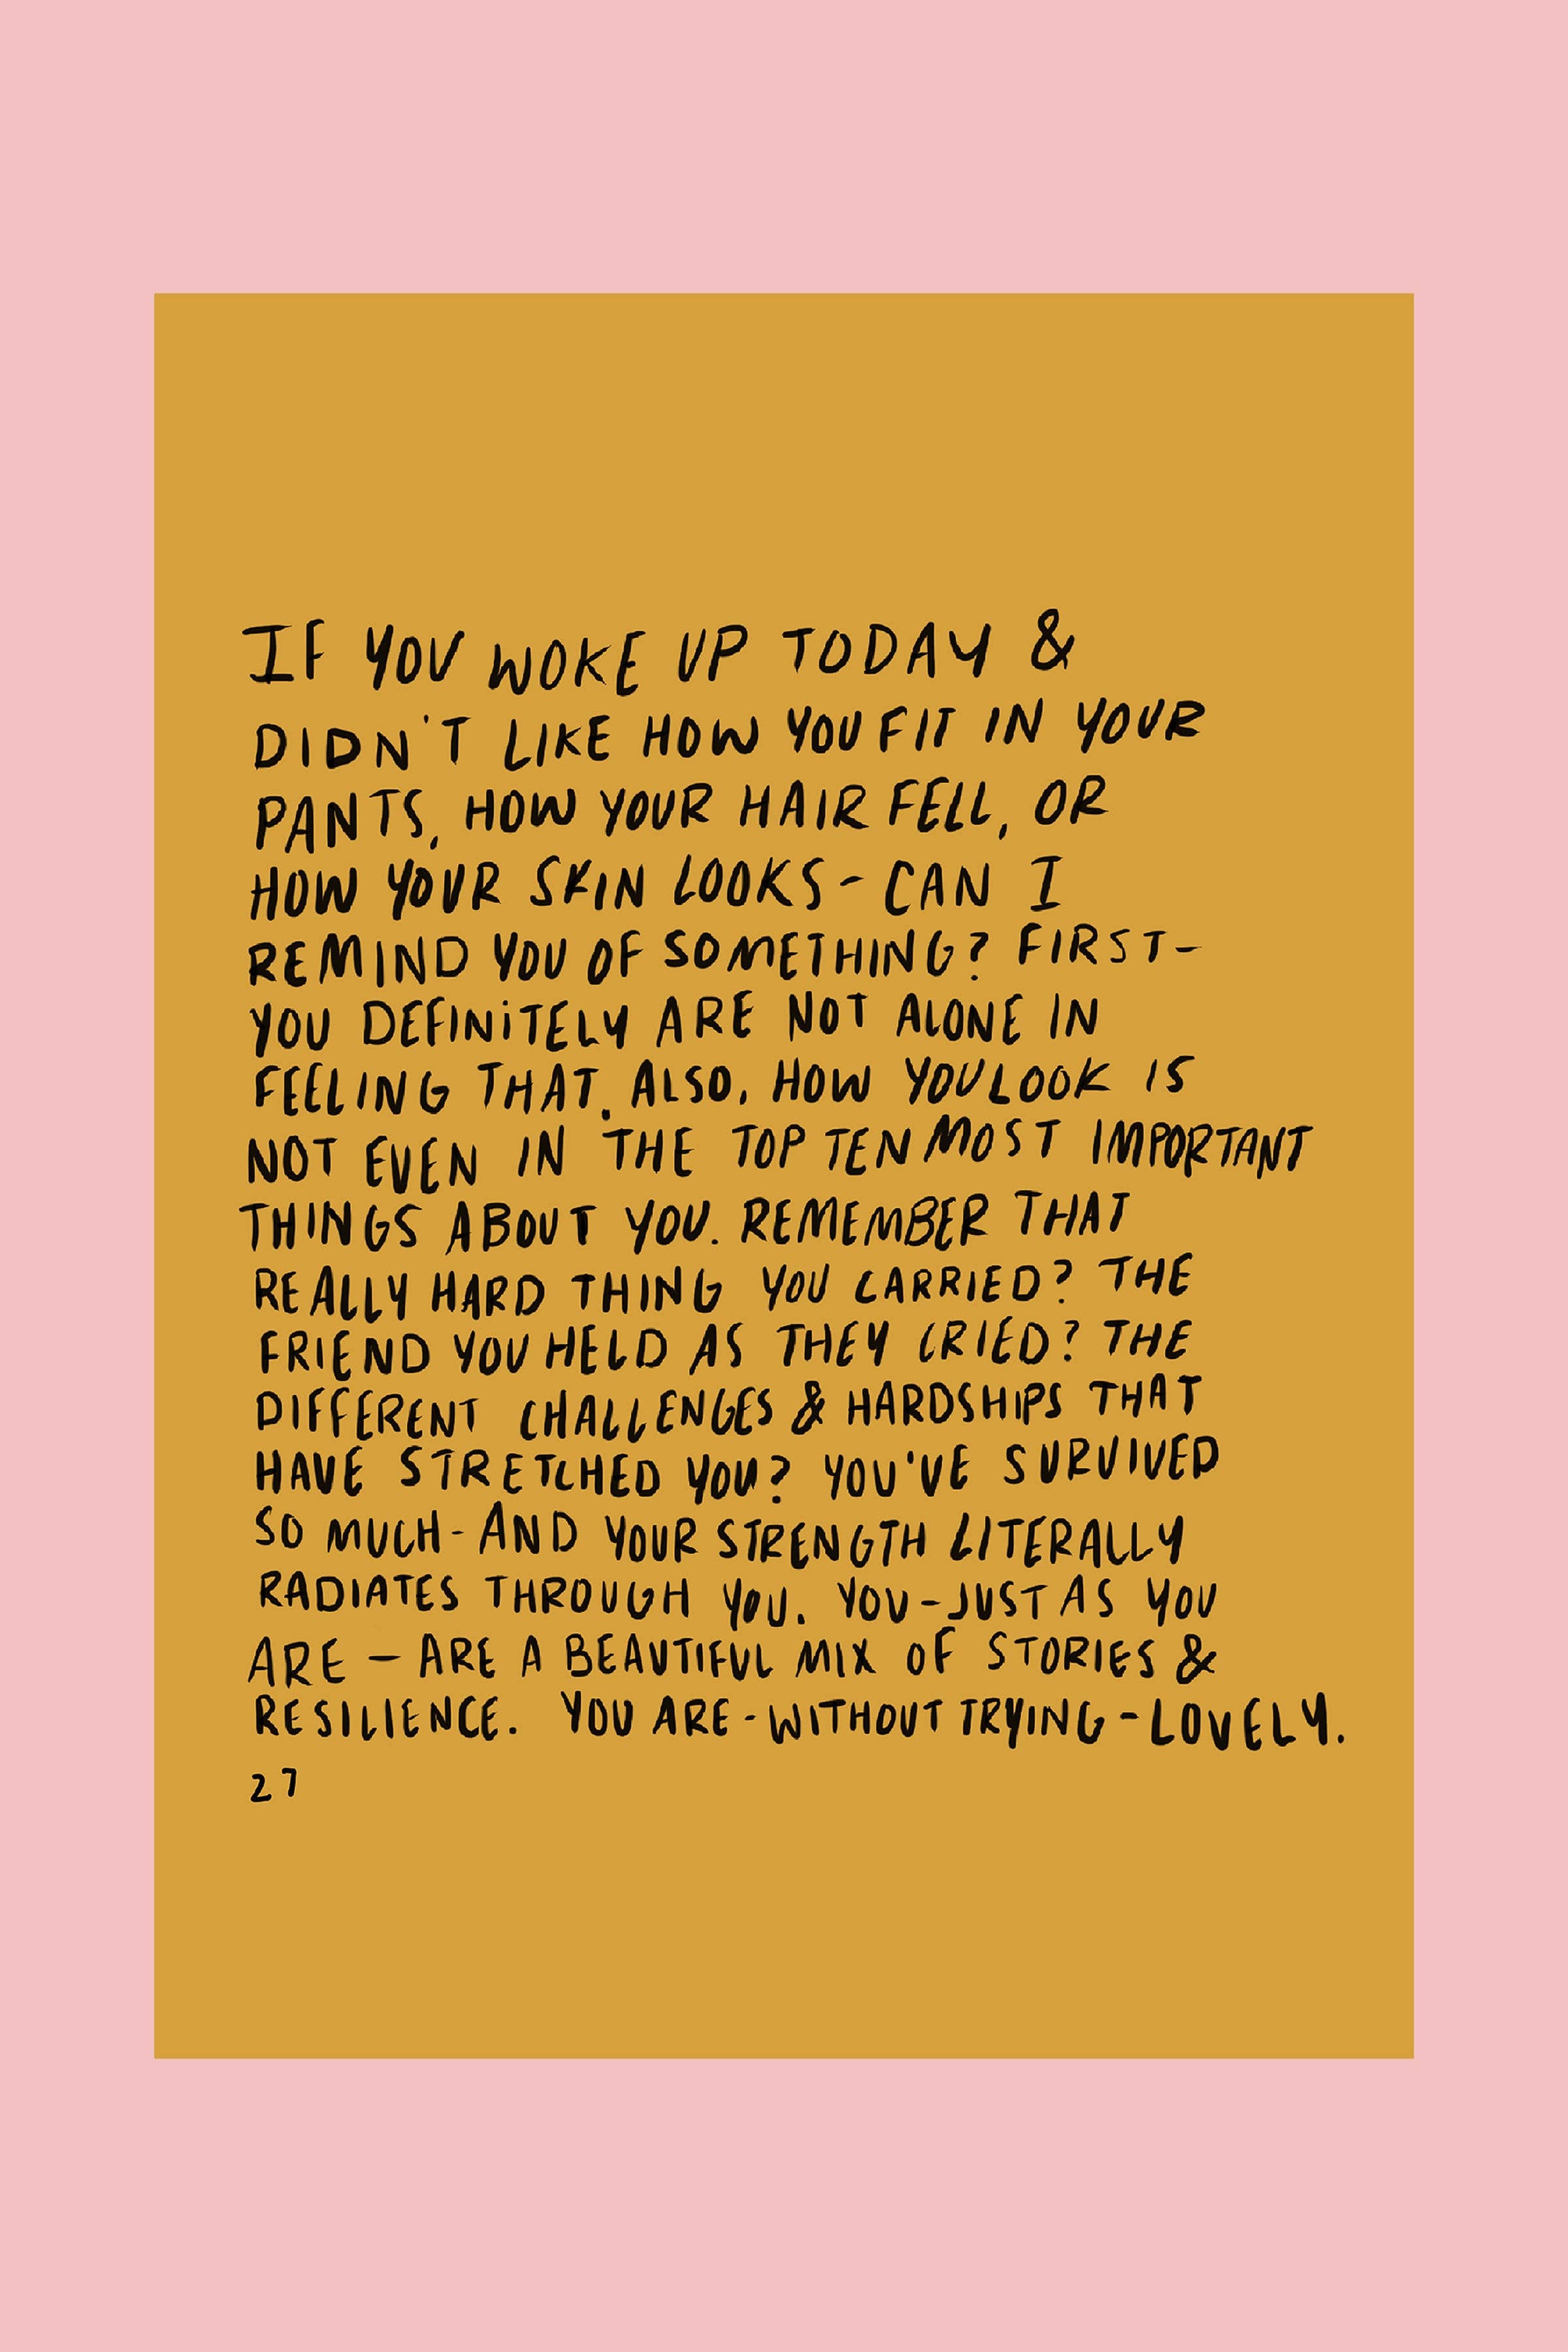 IF YOU WOKE UP TODAY &
DIDN'T LIKE HOW YOU FIT IN YOUR
PANTS, HOW YOUR HAIR FELL, OR
HOW YOUR SKIN LOOKS - CAN I
REMIND YOU OF SOMETHING? FIRST -
YOU DEFINITELY ARE NOT ALONE IN
FEELING THAT. ALSO, HOW YOU LOOK IS
NOT EVEN IN THE TOP TEN MOST IMPORTANT
THINGS ABOUT YOU. REMEMBER THAT
REALLY HARD THING YOU CARRIED? THE
FRIEND YOU HELD AS THEY CRIED? THE
DIFFERENT CHALLENGES & HARDSHIPS THAT
HAVE STRETCHED YOU? YOU'VE SURVIVED
SO MUCH - AND YOUR STRENGTH LITERALLY
RADIATES THROUGH YOU. YOU - JUST AS YOU
ARE — ARE A BEAUTIFUL MIX OF STORIES &
RESILIENCE. YOU ARE - WITHOUT TRYING - LOVELY.
27